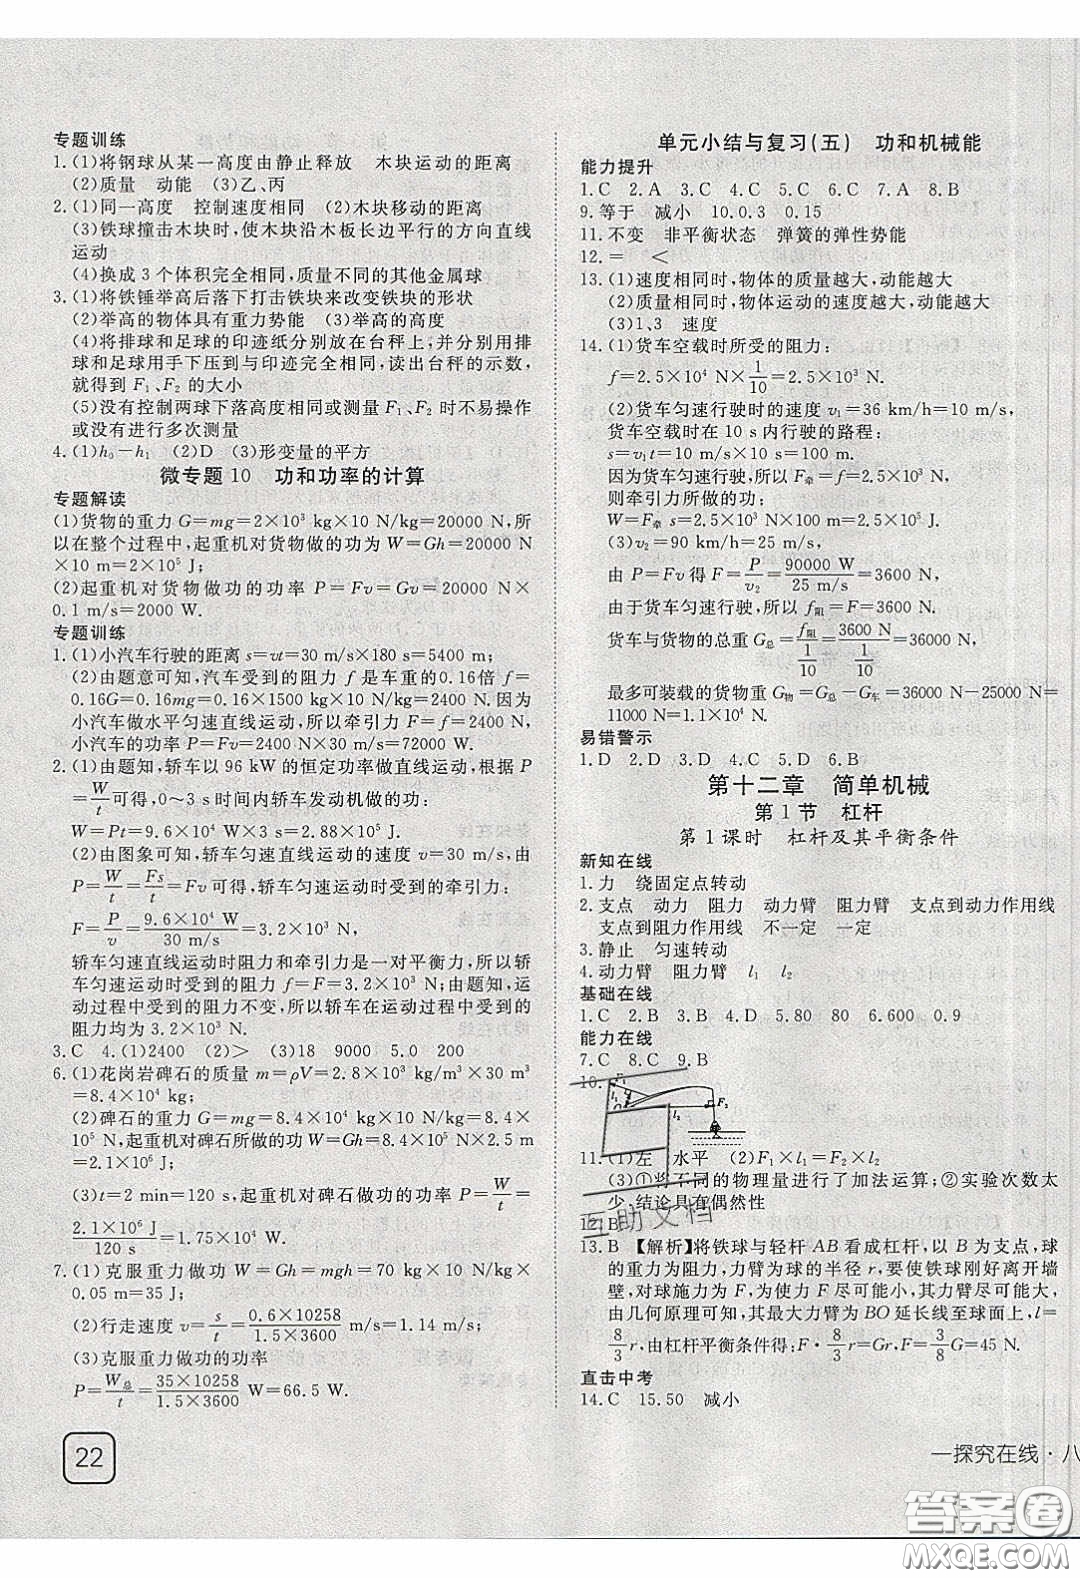 专题训练
1.(1)将钢球从某一高度由静止释放 木块运动的距离
(2)质量 动能 (3)乙、丙
2.(1)同一高度 控制速度相同 (2)木块移动的距离
(3)铁球撞击木块时,使木块沿木板长边平行的方向直线
运动
(4)换成 3 个体积完全相同,质量不同的其他金属球
3.(1)将铁锤举高后落下打击铁块来改变铁块的形状
(2)举高的物体具有重力势能 (3)举高的高度
(4)将排球和足球的印迹纸分别放在台秤上,并分别用排
球和足球用手下压到与印迹完全相同,读出台秤的示数,
就得到 F₁、F₂ 的大小
(5)没有控制两球下落高度相同或测量 F₁、F₂ 时不易操作
或没有进行多次测量
4.(1)h₀-h₁ (2)D (3)形变量的平方
微专题 10 功和功率的计算
专题解读
(1)货物的重力 G=mg=2×10³ kg×10 N/kg=20000 N,所
以在整个过程中,起重机对货物做的功为 W=Gh=20000 N
×10 m=2×10⁵ J;
(2)起重机对货物做功的功率 P=Fv=Gv=20000 N×
0.1 m/s=2000 W.
专题训练
1.(1)小汽车行驶的距离 s=vt=30 m/s×180 s=5400 m;
(2)由题意可知,汽车受到的阻力 f 是车重的0.16倍 f=
0.16G=0.16×1500 kg×10 N/kg=2400 N.因为
小汽车做水平匀速直线运动,所以牵引力 F=f=2400 N,
小汽车的功率 P=Fv=2400 N×30 m/s=72000 W.
2.(1)由题知,轿车以 96 kW 的恒定功率做直线运动,根据 P
=W/t可得,0~3 s时间内轿车发动机做的功:
W=Pt=9.6×10⁴ W×3 s=2.88×10⁵ J.
(2)由图象可知,轿车匀速直线运动的速度 v=30 m/s,由
P=W/t=Fs/t=Fv可得,轿车匀速运动时受到的牵引力:
F=P/v=9.6×10⁴ W/30 m/s=3.2×10³ N,
轿车匀速直线运动时阻力和牵引力是一对平衡力,所以轿
车匀速运动时受到的阻力 f=F=3.2×10³ N;由题知,运
动过程中受到的阻力不变,所以轿车在运动过程中受到的
阻力均为 3.2×10³ N.
3.C 4.(1)2400 (2)> (3)18 9000 5.0 200
6.(1)花岗岩碑石的质量 m=ρV=2.8×10³ kg/m³×30 m³
=8.4×10⁴ kg;
(2)碑石的重力 G=mg=8.4×10⁴ kg×10 N/kg=8.4×
10⁵ N,起重机对碑石所做的功 W=Gh=8.4×10⁵ N×2.5 m
=2.1×10⁶ J;
(3)t=2 min=120 s,起重机对碑石做功的功率 P=W/t=
2.1×10⁶ J/120 s=1.75×10⁴ W.
7.(1)克服重力做功 W=Gh=mgh=70 kg×10 N/kg×
0.05 m=35 J;
(2)行走速度 v=s/t=0.6×10258/1.5×3600 m/s=1.14 m/s;
(3)克服重力做功的功率
P=W总/t=35×10258/1.5×3600 W=66.5 W.
22
单元小结与复习(五) 功和机械能
能力提升
1.C 2.A 3.C 4.C 5.C 6.C 7.A 8.B
9.等于 减小 10.0.3 0.15
11.不变 非平衡状态 弹簧的弹性势能
12.= <
13.(1)速度相同时,物体的质量越大,动能越大
(2)质量相同时,物体运动的速度越大,动能越大
(3)1、3 速度
14.(1)货车空载时所受的阻力:
f=2.5×10⁴ N×1/10=2.5×10³ N.
(2)货车匀速行驶时的速度 v₁=36 km/h=10 m/s,
货车空载时在 10 s内行驶的路程:
s=v₁t=10 m/s×10 s=100 m.
因为货车匀速行驶,所以 F牵=f=2.5×10³ N,
则牵引力所做的功:
W=F牵 s=2.5×10³ N×100 m=2.5×10⁵ J.
(3)v₂=90 km/h=25 m/s,
由 P=Fv得 F=P/v₂=90000 W/25 m/s=3600 N,
由于货车匀速行驶,所以 f阻=F=3600 N,
货车与货物的总重 G总=f阻/(1/10)=3600 N/(1/10)=36000 N,
最多可装载的货物重 G物=G总-G车=36000 N-25000 N=
11000 N=1.1×10⁴ N.
易错警示
1.D 2.D 3.D 4.C 5.D 6.B
第十二章 简单机械
第 1 节 杠杆
第 1 课时 杠杆及其平衡条件
新知在线
1.力 绕固定点转动
2.支点 动力 阻力 动力臂 阻力臂 支点到动力作用线
支点到阻力作用线 不一定 一定
3.静止 匀速转动
4.动力臂 阻力臂 l₁ l₂
基础在线
1.C 2.B 3.B 4.D 5.80 80 6.600 0.9
能力在线
7.C 8.C 9.B
10.
l₁ O l₂ F₂
11.(1)左 水平 (2)F₁×l₁=F₂×l₂
(3)①将不同的物理量进行了加法运算;②实验次数太
少,结论具有偶然性
12.B
13.B 【解析】将铁球与轻杆 AB 看成杠杆,以 B 为支点,球
的重力为阻力,力臂为球的半径 r,要使铁球刚好离开墙
壁,对球施加的力为F,为使力 F 尽可能小,其力臂尽可能大,
由几何原理可知,其最大力臂为 BO 延长线至球面上,l=
8/3 r,由杠杆平衡条件得:F·8/3 r=Gr,F=3/8 G=45 N.
直击中考
14.C 15.50 减小
一探究在线·八
互助文档
答案圈
MXQE.COM